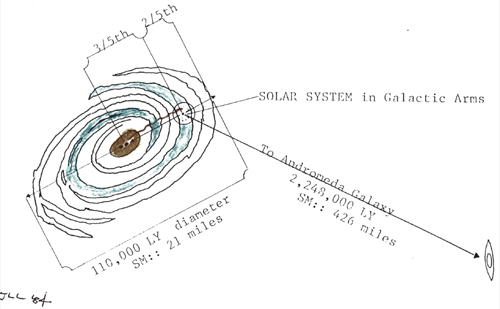 3/5th 2/5th
SOLAR SYSTEM in Galactic Arms
To Andromeda Galaxy
2,248,000 LY
SM:: 426 miles
110,000 LY diameter
SM:: 21 miles
JLL 84